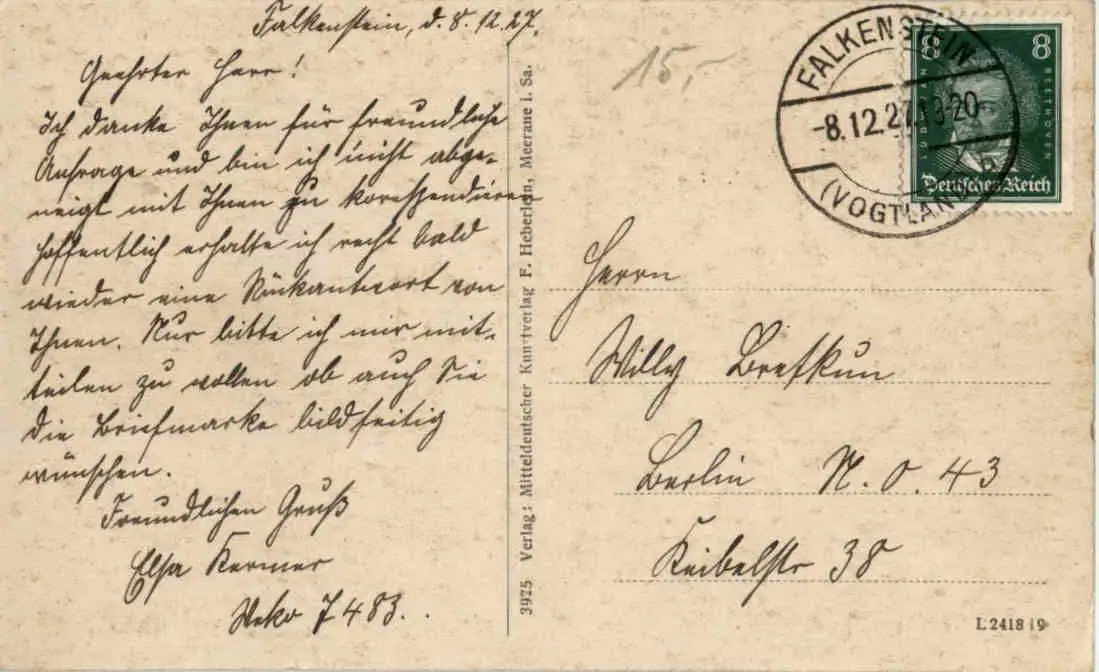 Falkenstein, d. 8.12.27.
Geehrter Herr!
Ich danke Ihnen für freundliche
Anfrage und bin ich nicht abge-
neigt mit Ihnen zu korespondieren
hoffentlich erhalte ich recht bald
wieder eine Rückantwort von
Ihnen. Nur bitte ich mir mit-
teilen zu wollen ob auch Sie
die Briefmarke bildseitig
wünschen.
Freundlichen Gruß
Elsa Kermer
Weko 7483.
3925 Verlag: Mitteldeutscher Kunstverlag F. Heberlein, Meerane i. Sa.
15,-
FALKENSTEIN
-8.12.27.19-20
(VOGTLAND)
8 8
LUDWIG VAN BEETHOVEN
Deutsches Reich
Herrn
Willy Bretkun
Berlin N.O. 43
Keibelstr 38
L 2418|9